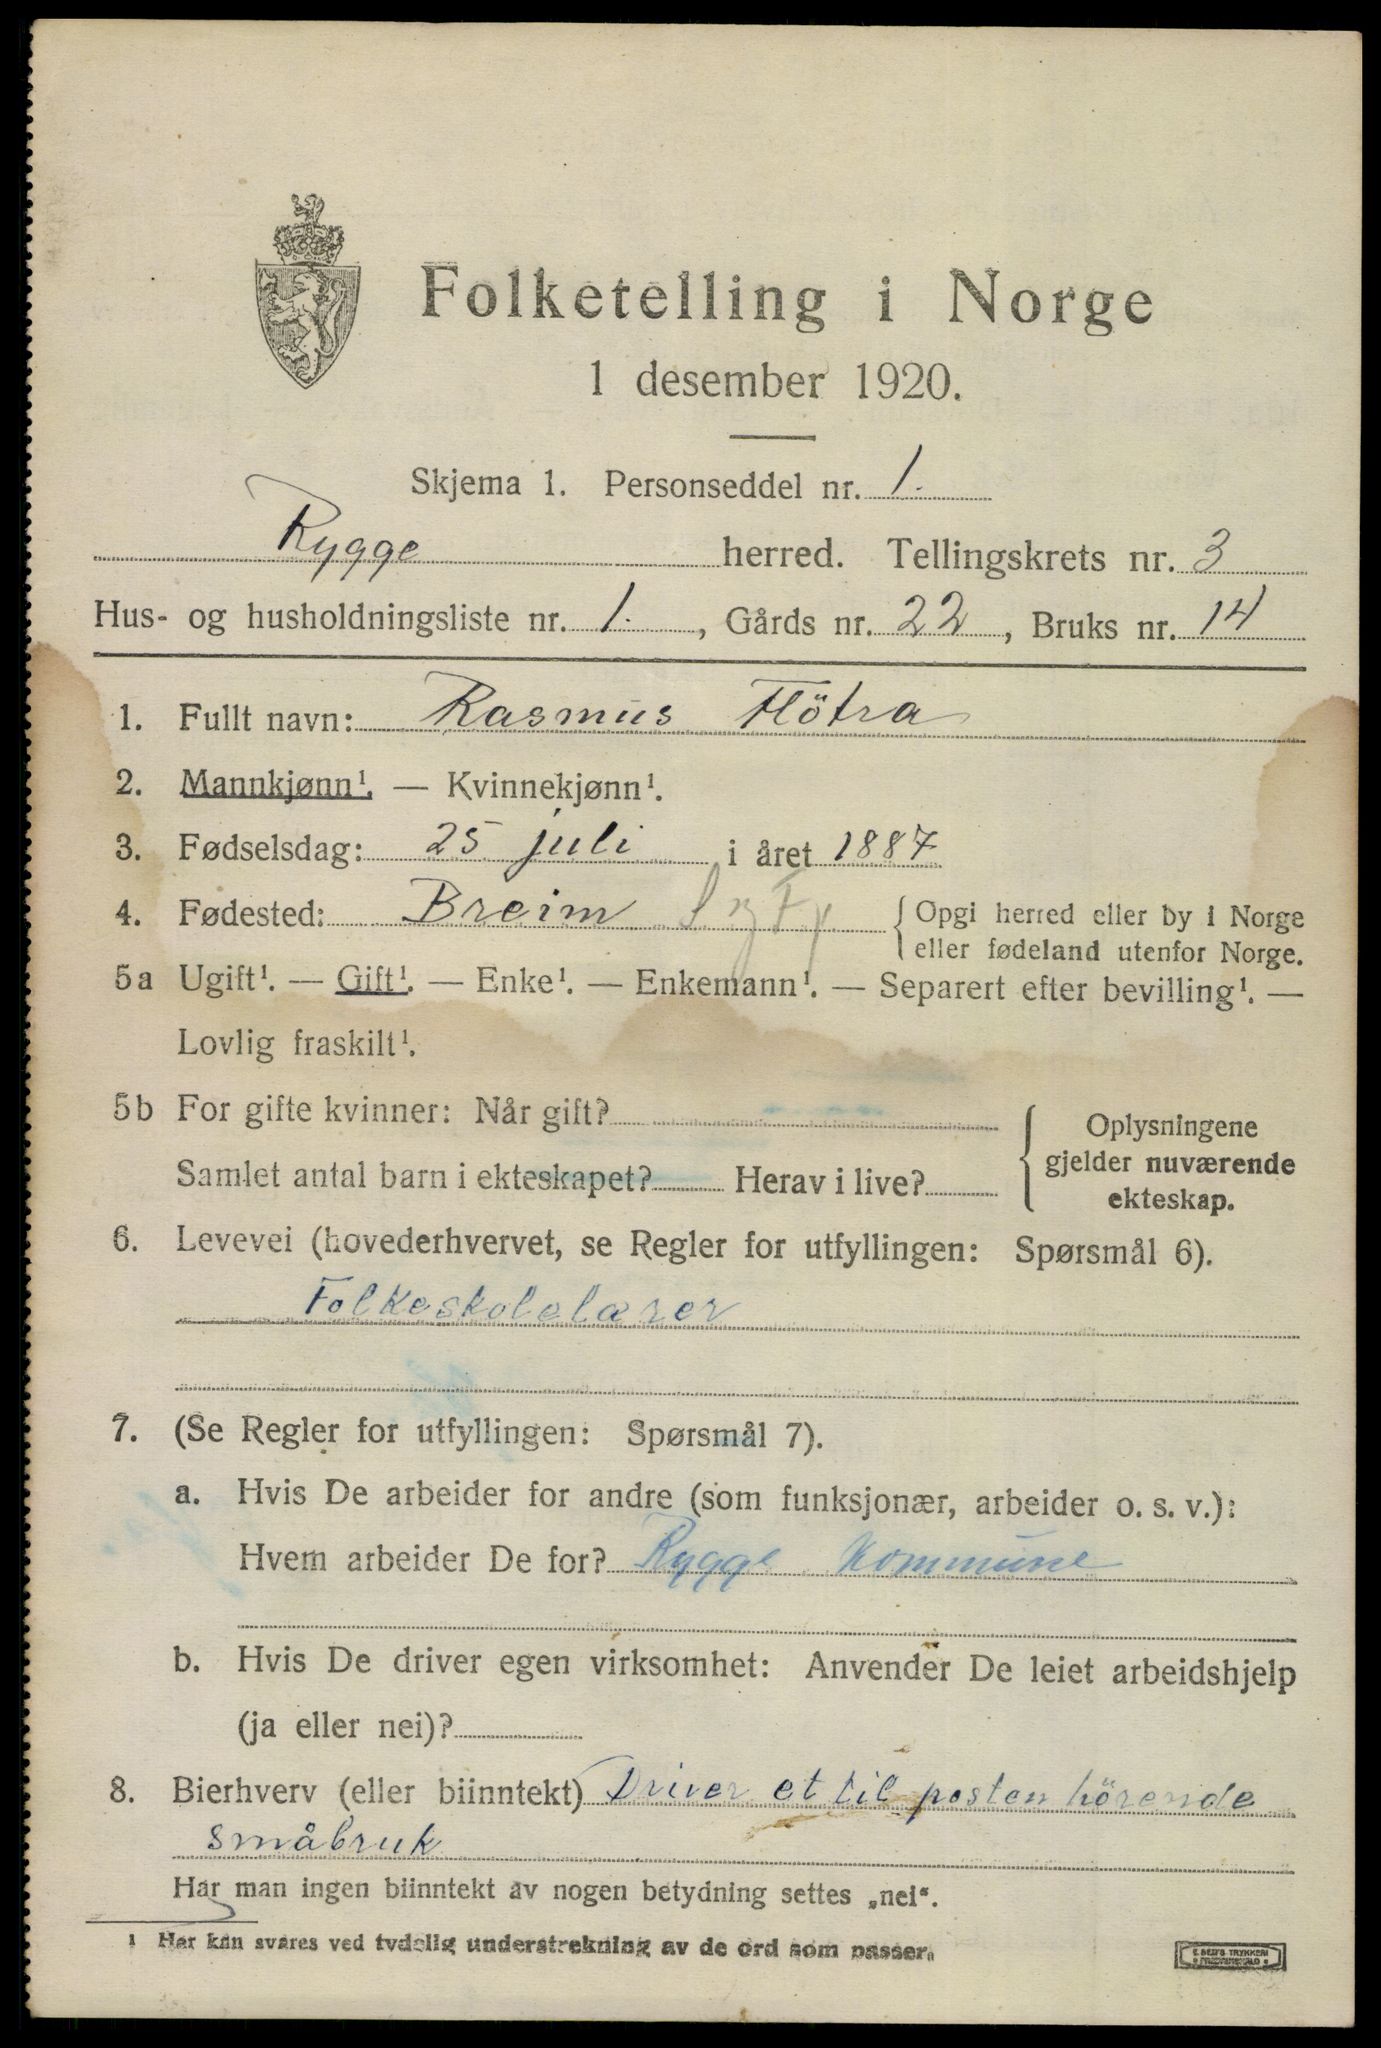 Folketelling i Norge
1 desember 1920.
Skjema 1. Personseddel nr. 1.
Rygge herred. Tellingskrets nr. 3
Hus- og husholdningsliste nr. 1. , Gårds nr. 22 , Bruks nr. 14
1. Fullt navn: Rasmus Flötra
2. Mannkjønn¹. — Kvinnekjønn¹.
3. Fødselsdag: 25 juli i året 1887
4. Fødested: Breim { Opgi herred eller by i Norge
eller fødeland utenfor Norge.
5a Ugift¹. — Gift¹. — Enke¹. — Enkemann¹. — Separert efter bevilling¹. —
Lovlig fraskilt¹.
5b For gifte kvinner: Når gift?
Samlet antal barn i ekteskapet? Herav i live?
{ Oplysningene
gjelder nuværende
ekteskap.
6. Levevei (hovederhvervet, se Regler for utfyllingen: Spørsmål 6).
Folkeskolelærer
7. (Se Regler for utfyllingen: Spørsmål 7).
a. Hvis De arbeider for andre (som funksjonær, arbeider o. s. v.):
Hvem arbeider De for? Rygge kommune
b. Hvis De driver egen virksomhet: Anvender De leiet arbeidshjelp
(ja eller nei)?
8. Bierhverv (eller biinntekt) Driver et til posten hörende
småbruk
Har man ingen biinntekt av nogen betydning settes „nei“.
1 Her kan svares ved tydelig understrekning av de ord som passer.